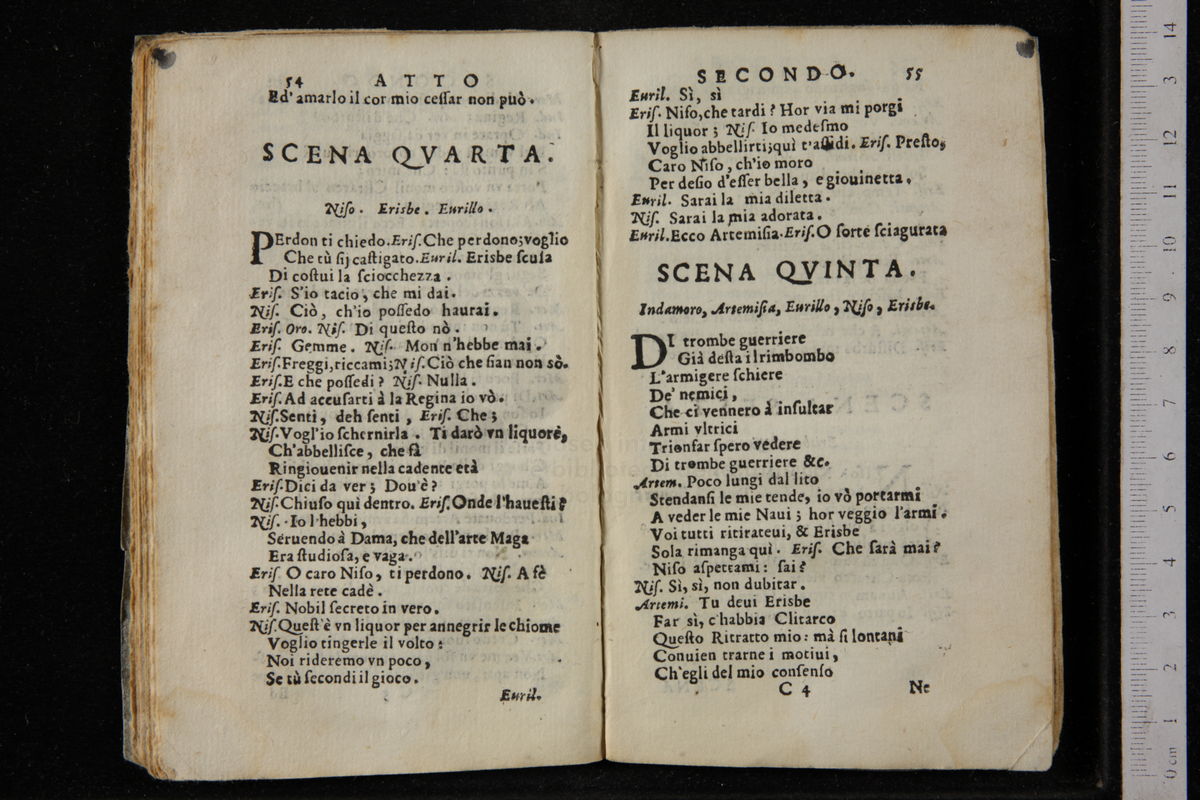 54 ATTO
Ed'amarlo il cor mio ceſſar non può.
SCENA QVARTA.
Niſo. Erisbe. Eurillo.
PErdon ti chiedo. Eriſ. Che perdono; voglio
Che tù ſij caſtigato. Euril. Erisbe ſcuſa
Di coſtui la ſciocchezza.
Eriſ. S'io tacio, che mi dai.
Niſ. Ciò, ch'io poſſedo haurai.
Eriſ. Oro. Niſ. Di queſto nò.
Eriſ. Gemme. Niſ. Mon n'hebbe mai.
Eriſ. Freggi, riccami; Niſ. Ciò che ſian non sò.
Eriſ. E che poſſedi? Niſ. Nulla.
Eriſ. Ad accuſarti à la Regina io vò.
Niſ. Senti, deh ſenti, Eriſ. Che;
Niſ. Vogl'io ſchernirla. Ti darò vn liquorè,
Ch'abbelliſce, che fà
Ringiouenir nella cadente età
Eriſ. Dici da ver; Dou'è?
Niſ. Chiuſo quì dentro. Eriſ. Onde l'haueſti?
Niſ. Io l'hebbi,
Seruendo à Dama, che dell'arte Maga
Era ſtudioſa, e vaga.
Eriſ O caro Niſo, ti perdono. Niſ. A fè
Nella rete cadè.
Eriſ. Nobil ſecreto in vero.
Niſ. Queſt'è vn liquor per annegrir le chiome
Voglio tingerle il volto:
Noi rideremo vn poco,
Se tù ſecondi il gioco.
Euril.
SECONDO. 55
Euril. Sì, sì
Eriſ. Niſo, che tardi? Hor via mi porgi
Il liquor; Niſ. Io medeſmo
Voglio abbellirti; quì t'aſſidi. Eriſ. Preſto,
Caro Niſo, ch'io moro
Per deſio d'eſſer bella, e giouinetta.
Euril. Sarai la mia diletta.
Niſ. Sarai la mia adorata.
Euril. Ecco Artemiſia. Eriſ. O ſorte ſciagurata
SCENA QVINTA.
Indamoro, Artemiſia, Eurillo, Niſo, Erisbe.
DI trombe guerriere
Già deſta il rimbombo
L'armigere ſchiere
De' nemici,
Che ci vennero à inſultar
Armi vltrici
Trionfar ſpero vedere
Di trombe guerriere &c.
Artem. Poco lungi dal lito
Stendanſi le mie tende, io vò portarmi
A veder le mie Naui; hor veggio l'armi.
Voi tutti ritirateui, & Erisbe
Sola rimanga quì. Eriſ. Che ſarà mai?
Niſo aſpettami: ſai?
Niſ. Sì, sì, non dubitar.
Artemi. Tu deui Erisbe
Far sì, c'habbia Clitarco
Queſto Ritratto mio: mà ſi lontani
Conuien trarne i motiui,
Ch'egli del mio conſenſo
C 4 Ne